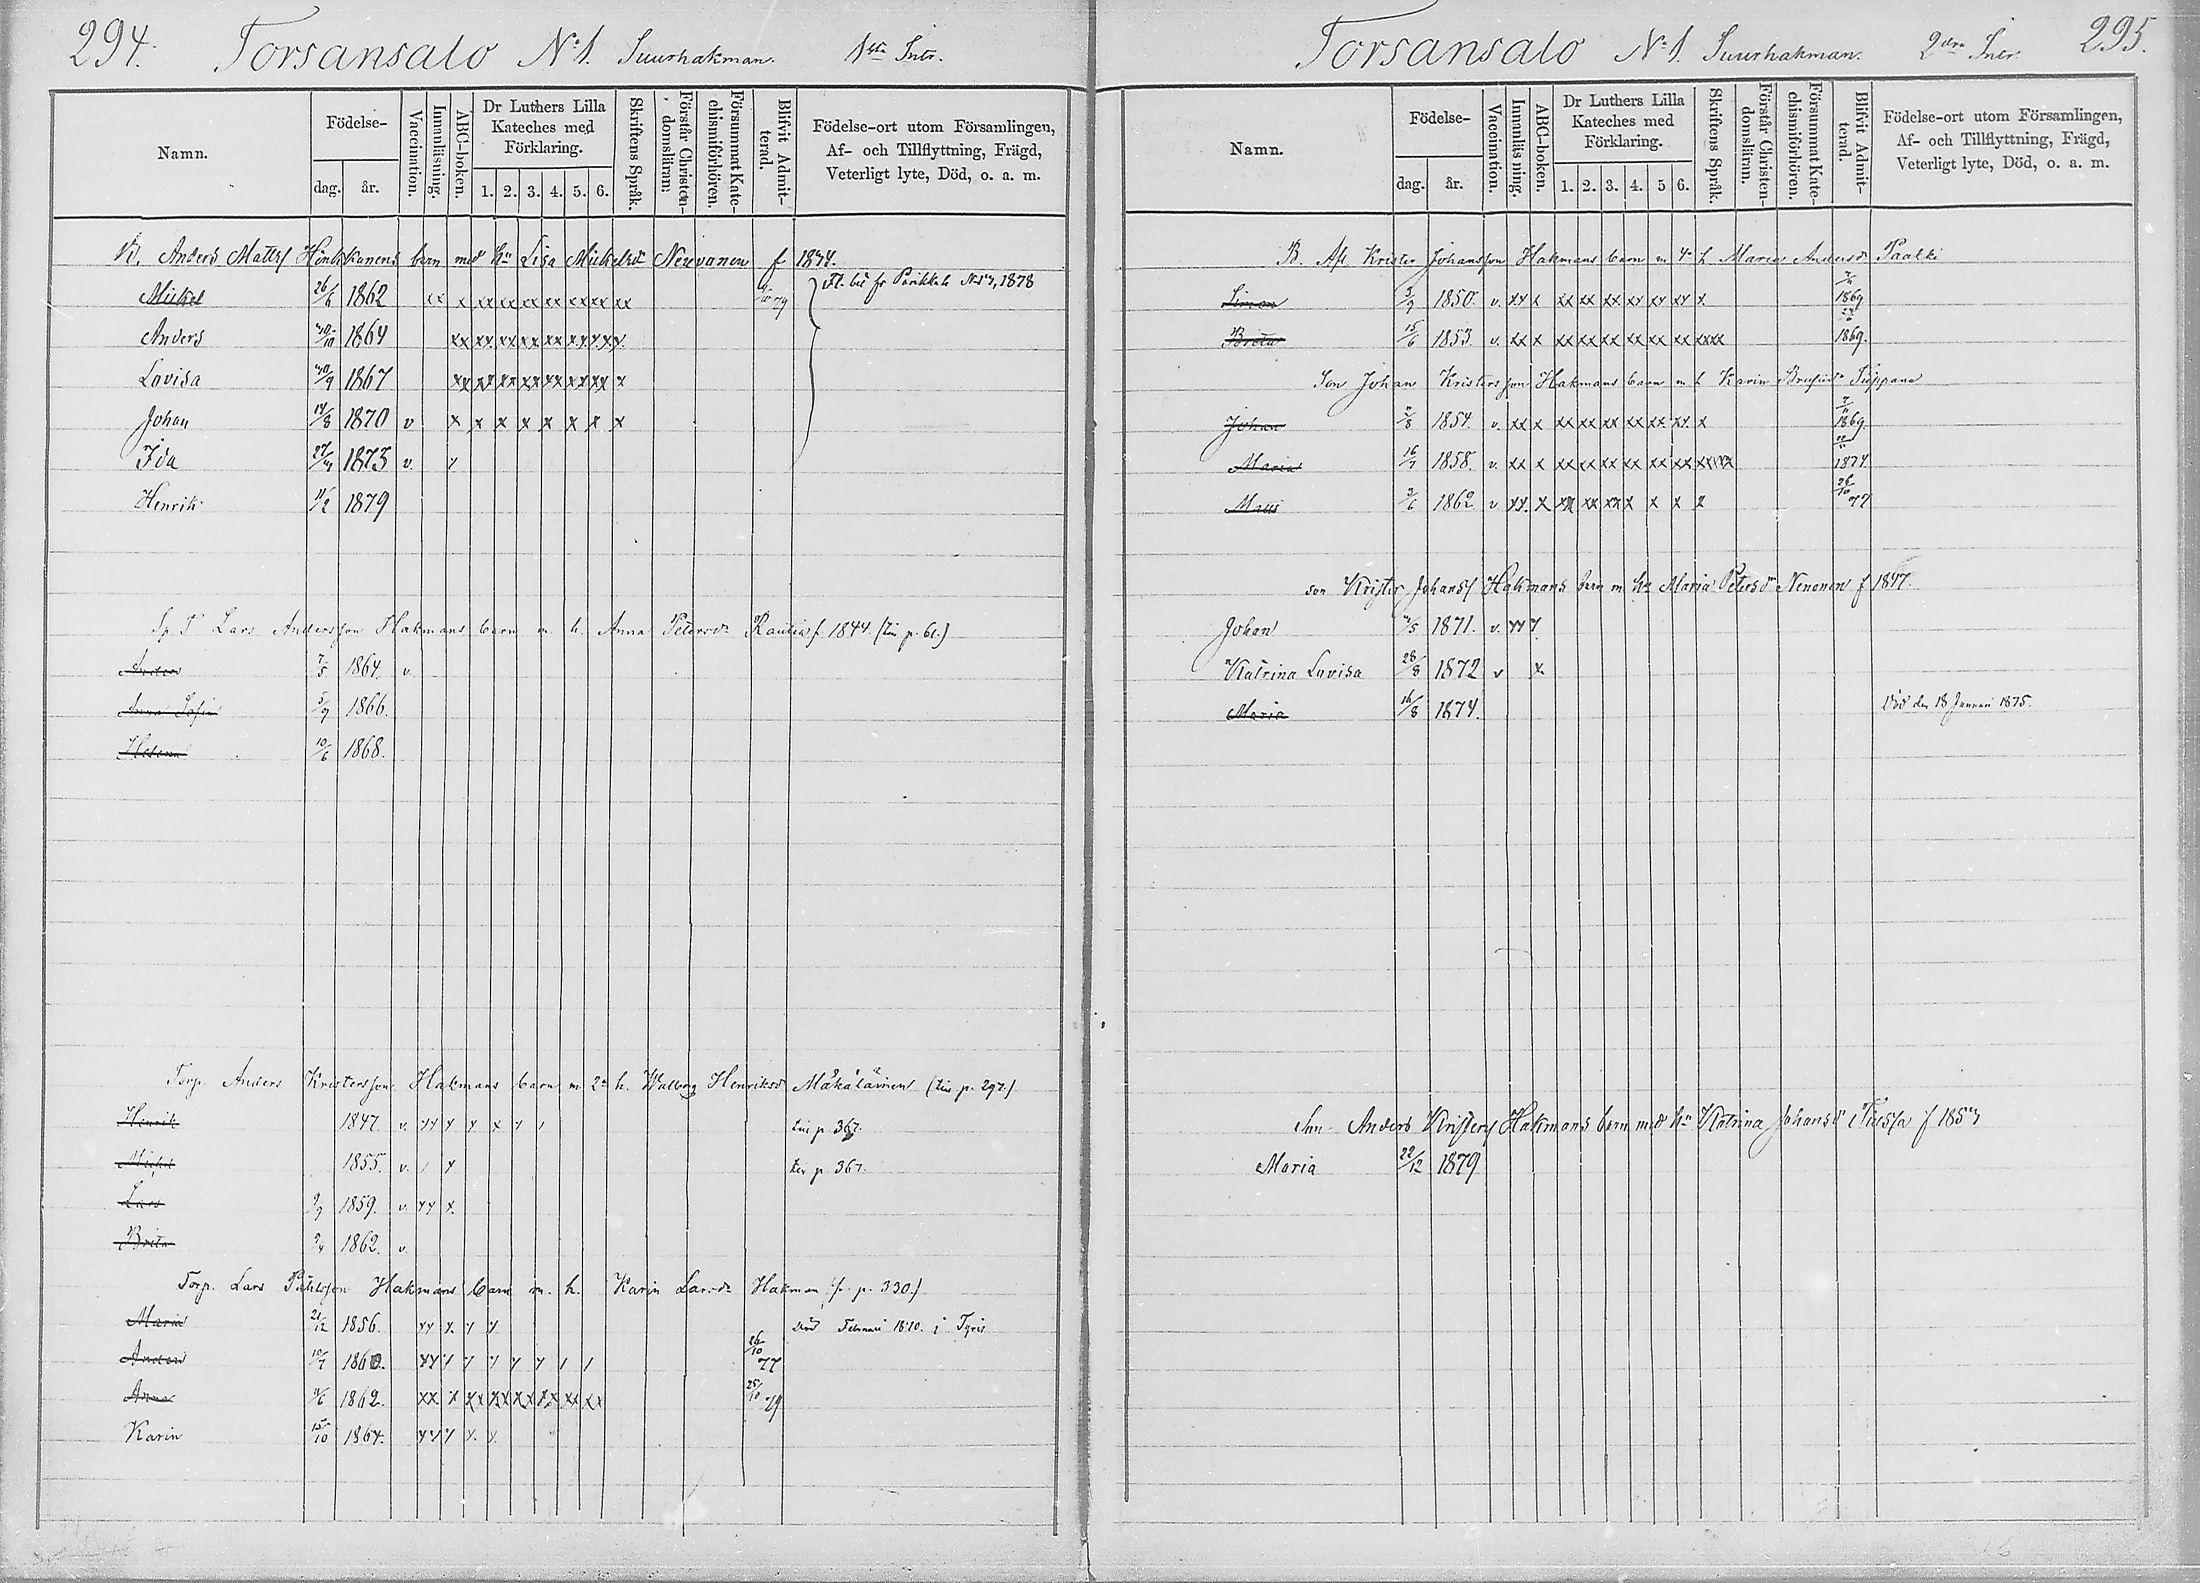 294. Torsansalo No 1. Suurhakman. 1sta Intr.
Namn.
Födelse-
dag. år.
Vaccination.
Innanläsning.
ABC-boken.
Dr Luthers Lilla Kateches med Förklaring.
1. 2. 3. 4. 5. 6.
Skriftens Språk.
Förstår Christendomsläran.
Försummat Katechismiförhören.
Blifvit Admitterad.
Födelse-ort utom Församlingen, Af- och Tillflyttning, Frägd, Veterligt lyte, Död, o. a. m.
Anders Matts Hinkkanens barn med hu Lisa Mickelsdr Neuvonen f 1844.
Mickel 26/6 1862 xx x xx xx xx xx xx xx xx
Fl. bet fr Parikkala 1878
Anders 1864 xx xx xx xx xx xx xx
Lovisa 1867 xx xx xx xx xx xx xx x
Johan 14/8 1870 v x x x x x x x x
Ida 1873 v.
Henrik 1879
Lars Andersson Hakmans barn m. h. Anna Petersdr Rautia f 1844. (Lin p. 61.)
Anders 7/5 1864. v.
Anna Sofia 5/9 1866.
Helena 10/6 1868.
Torp. Anders Kristersson Hakmans barn m 2a h. Walborg Henriksdr Mäkäläinen (Lin p. 297.)
Henrik 1847. v.
Lin p. 367.
Michel 1855. v.
Lin p 367.
Lars 1859. v.
Brita 1862. v.
Torp. Lars Påhlsson Hakmans barn m. h. Karin Larsdr Hakman (fr. p. 330.)
Maria 21/12 1856.
död Februari 1870. i Tyris
Anders 10/7 1860. 26/10 77
Anna 1862. xx x xx xx xx xx xx xx 25/10 79
Karin 15/10 1864.
Torsansalo No 1. Suurhakman. 2dra Intr. 295.
Namn.
Födelse-
dag. år.
Vaccination.
Innanläsning.
ABC-boken.
Dr Luthers Lilla Kateches med Förklaring.
1. 2. 3. 4. 5 6.
Skriftens Språk.
Förstår Christendomsläran.
Försummat Katechismiförhören.
Blifvit Admitterad.
Födelse-ort utom Församlingen, Af- och Tillflyttning, Frägd, Veterligt lyte, Död, o. a. m.
B. Afl Krister Johansson Hakmans barn m h Maria Andersdr Paakki
Simon 3/9 1850. v. xx x xx xx xx xx xx xx x. 1869
Brita 15/6 1853. v. xx x xx xx xx xx xx xx xxxx 1869.
Son Johan Kristersson Hakmans barn m h Karin Sieppana
Johan 1854. v. xx x xx xx xx xx xx xx x 1869.
Maria 16/7 1858. v. xx x xx xx xx xx xx xx 1874.
Maria 1862 v xx. x xx xx xx x x x x 26/10 77
son Krister Johanss Hakmans barn m hu Maria Petersdr Nenonen f 1847.
Johan 1871. v.
Katrina Lovisa 28/8 1872 v x.
Maria 16/8 1874.
Död den 18 Januari 1875.
Son Anders Kristers Hakmans barn med hu Katrina Johansdr
Maria 22/12 1879